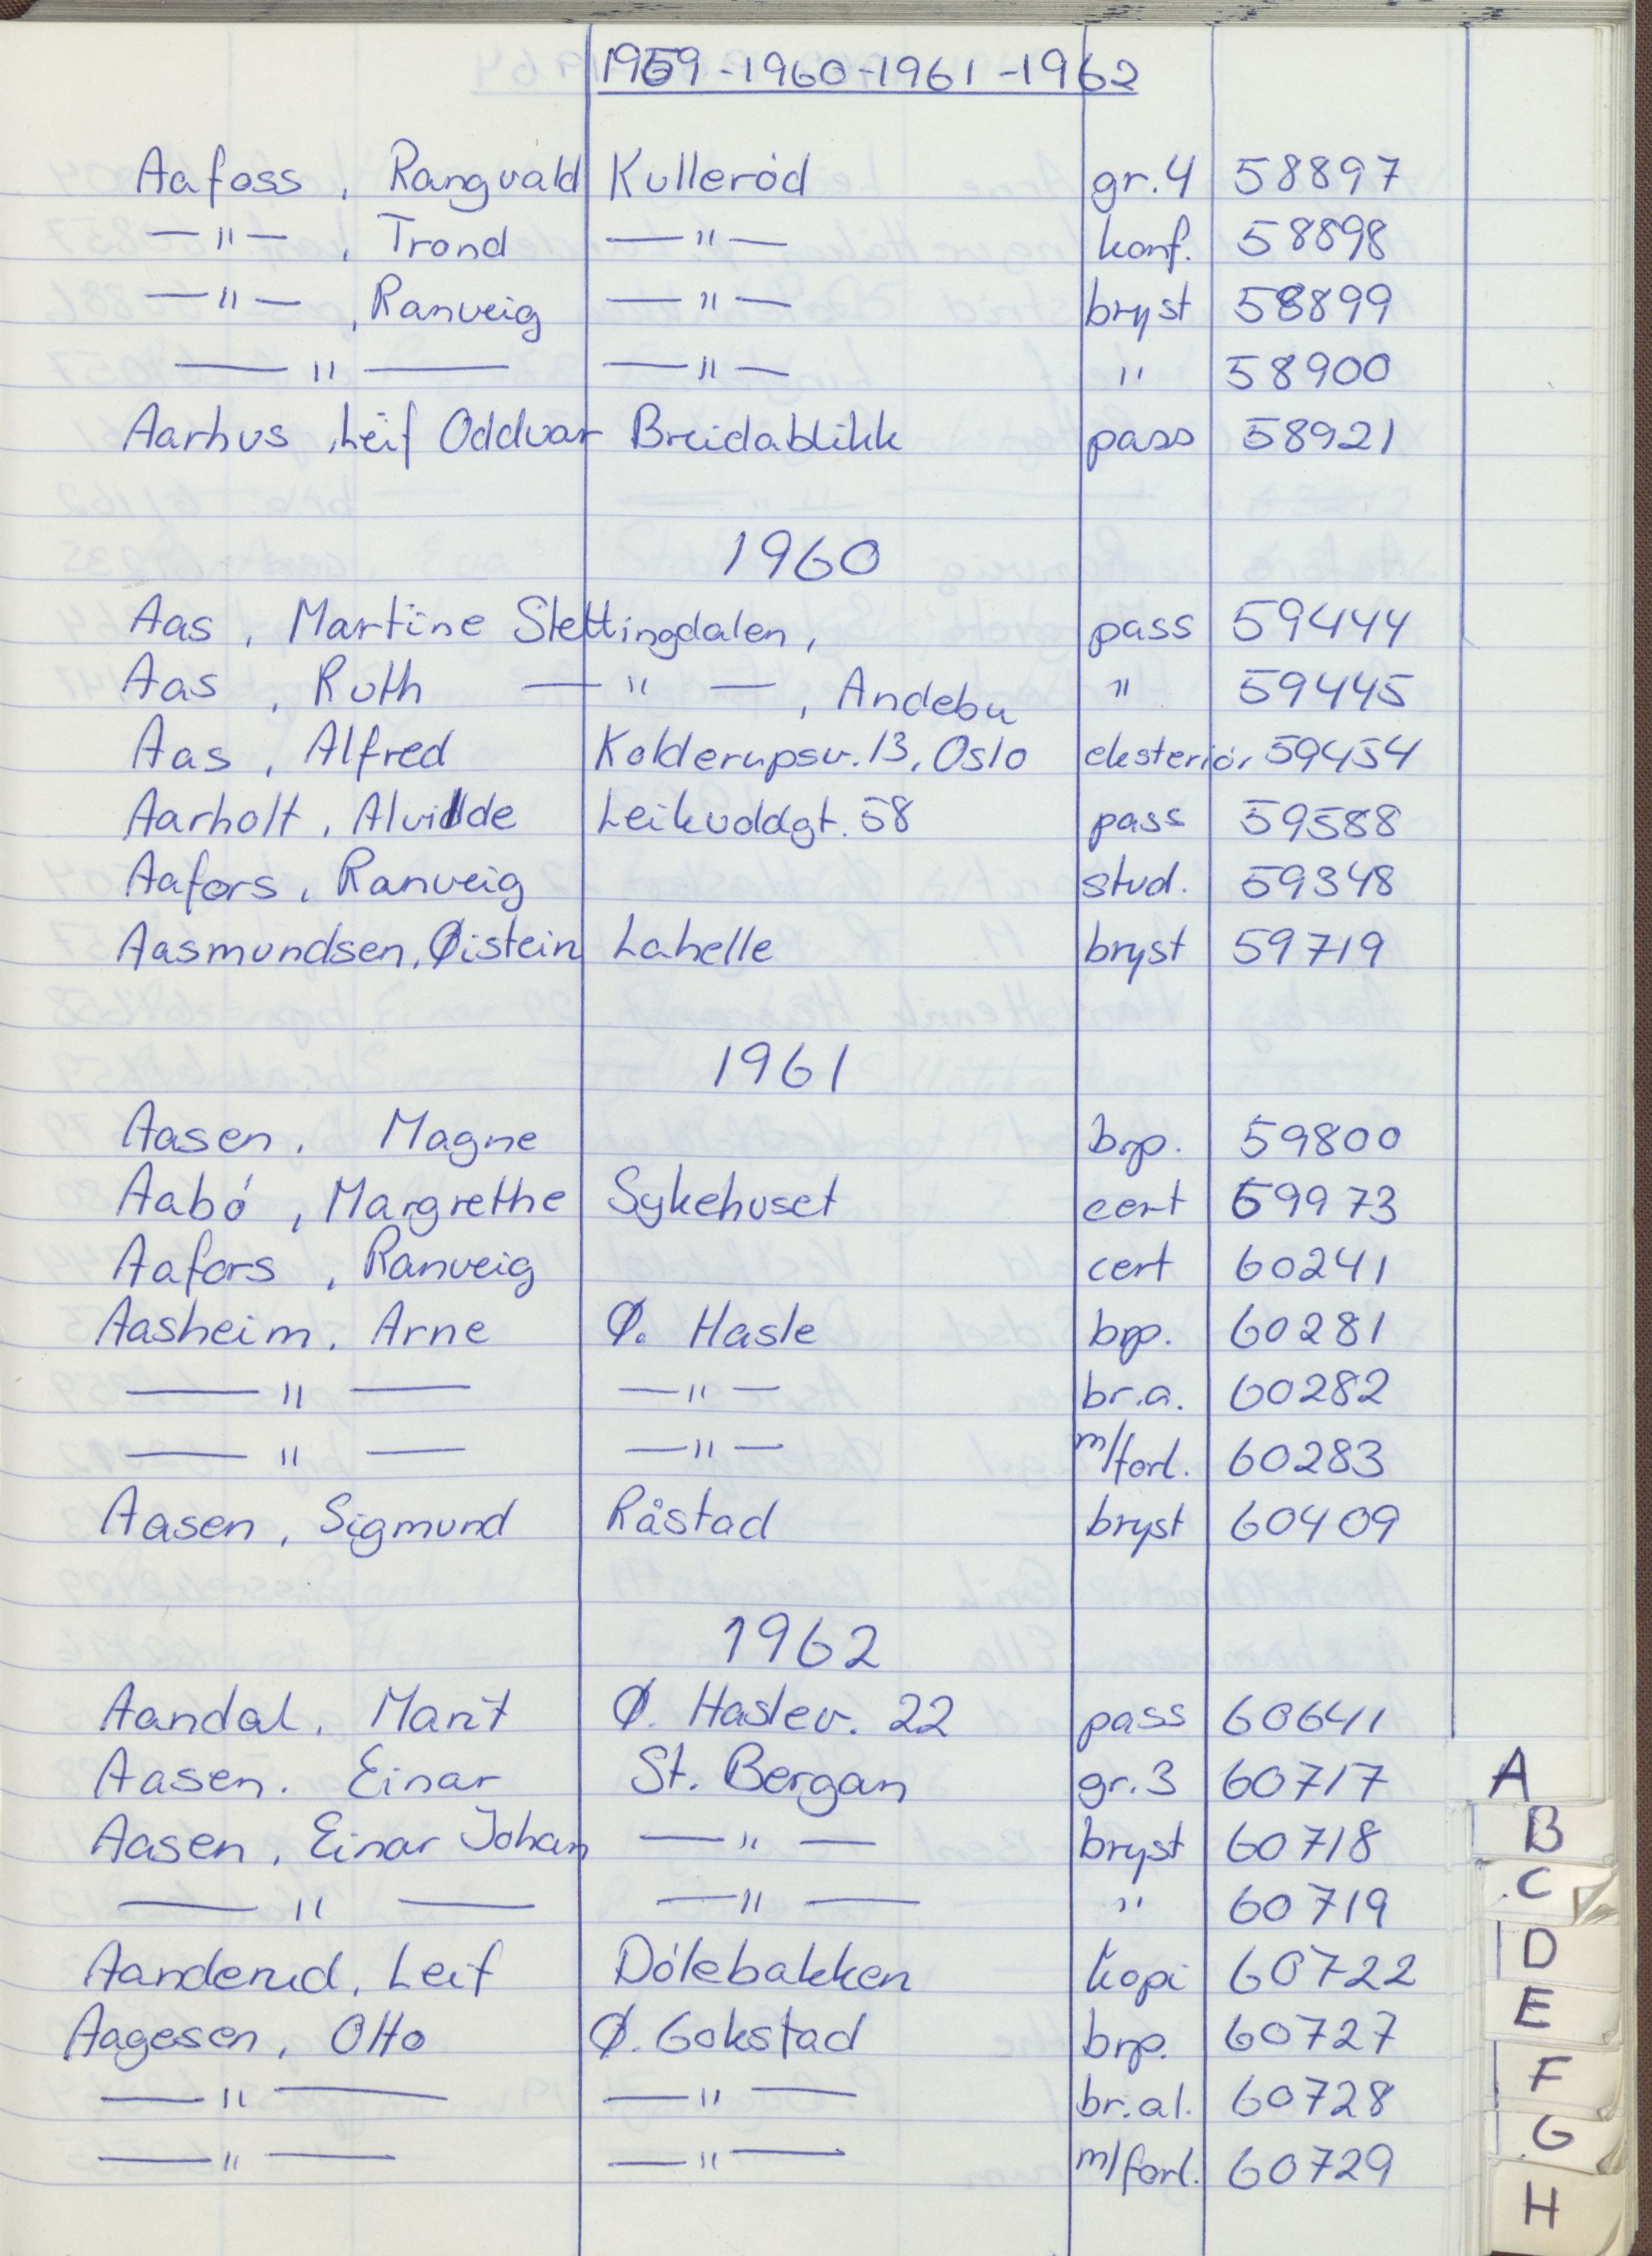 1959-1960-1961-1962
Aafoss, Rangvald Kulleród gr.4 58897
—"—, Trond —"— konf. 58898
—"—, Ranveig —"— bryst 58899
—"— —"— " 58900
Aarhus, Leif Oddvar Breidablikk pass 58921
1960
Aas, Martine Slettingdalen, pass 59444
Aas, Ruth —"—, Andebu " 59445
Aas, Alfred Kolderupsv. 13, Oslo eksteriór 59454
Aarholt, Alvilde Leikvoldgt. 58 pass 59588
Aafors, Ranveig stud. 59348
Aasmundsen, Øistein Lahelle bryst 59719
1961
Aasen, Magne brp. 59800
Aabó, Margrethe Sykehuset cert 59973
Aafors, Ranveig cert 60241
Aasheim, Arne Ø. Hasle brp. 60281
—"— —"— br.a. 60282
—"— —"— m/forl. 60283
Aasen, Sigmund Råstad bryst 60409
1962
Aandal, Marit Ø. Haslev. 22 pass 60641
Aasen. Einar St. Bergan gr.3 60717
Aasen, Einar Johan —"— bryst 60718
—"— —"— " 60719
Aanderud, Leif Dólebakken kopi 60722
Aagesen, Otto Ø. Gokstad brp. 60727
—"— —"— br.al. 60728
—"— —"— m/forl. 60729
A
B
C
D
E
F
G
H